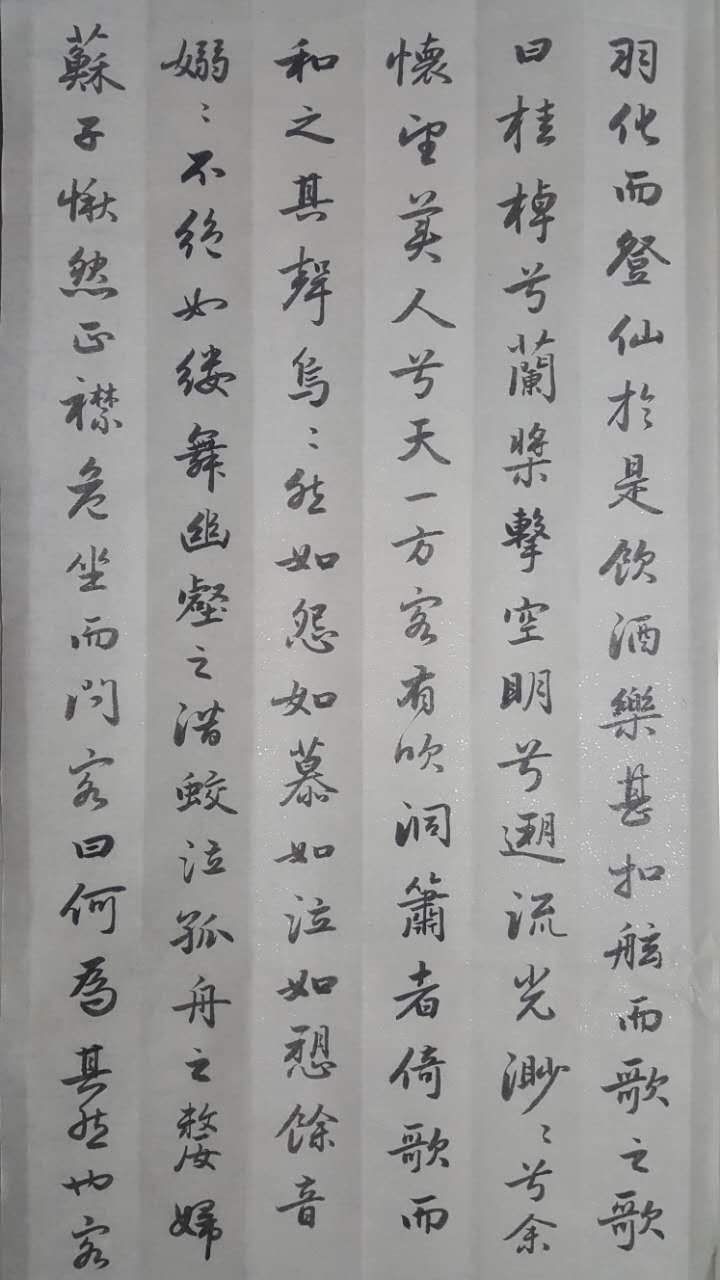 羽化而登仙於是飲酒樂甚扣舷而歌之歌
曰桂棹兮蘭槳擊空明兮遡流光渺〻兮余
懷望美人兮天一方客有吹洞簫者倚歌而
和之其聲烏〻然如怨如慕如泣如愬餘音
嫋〻不絕如縷舞幽壑之潛蛟泣孤舟之嫠婦
蘇子愀然正襟危坐而問客曰何為其然也客